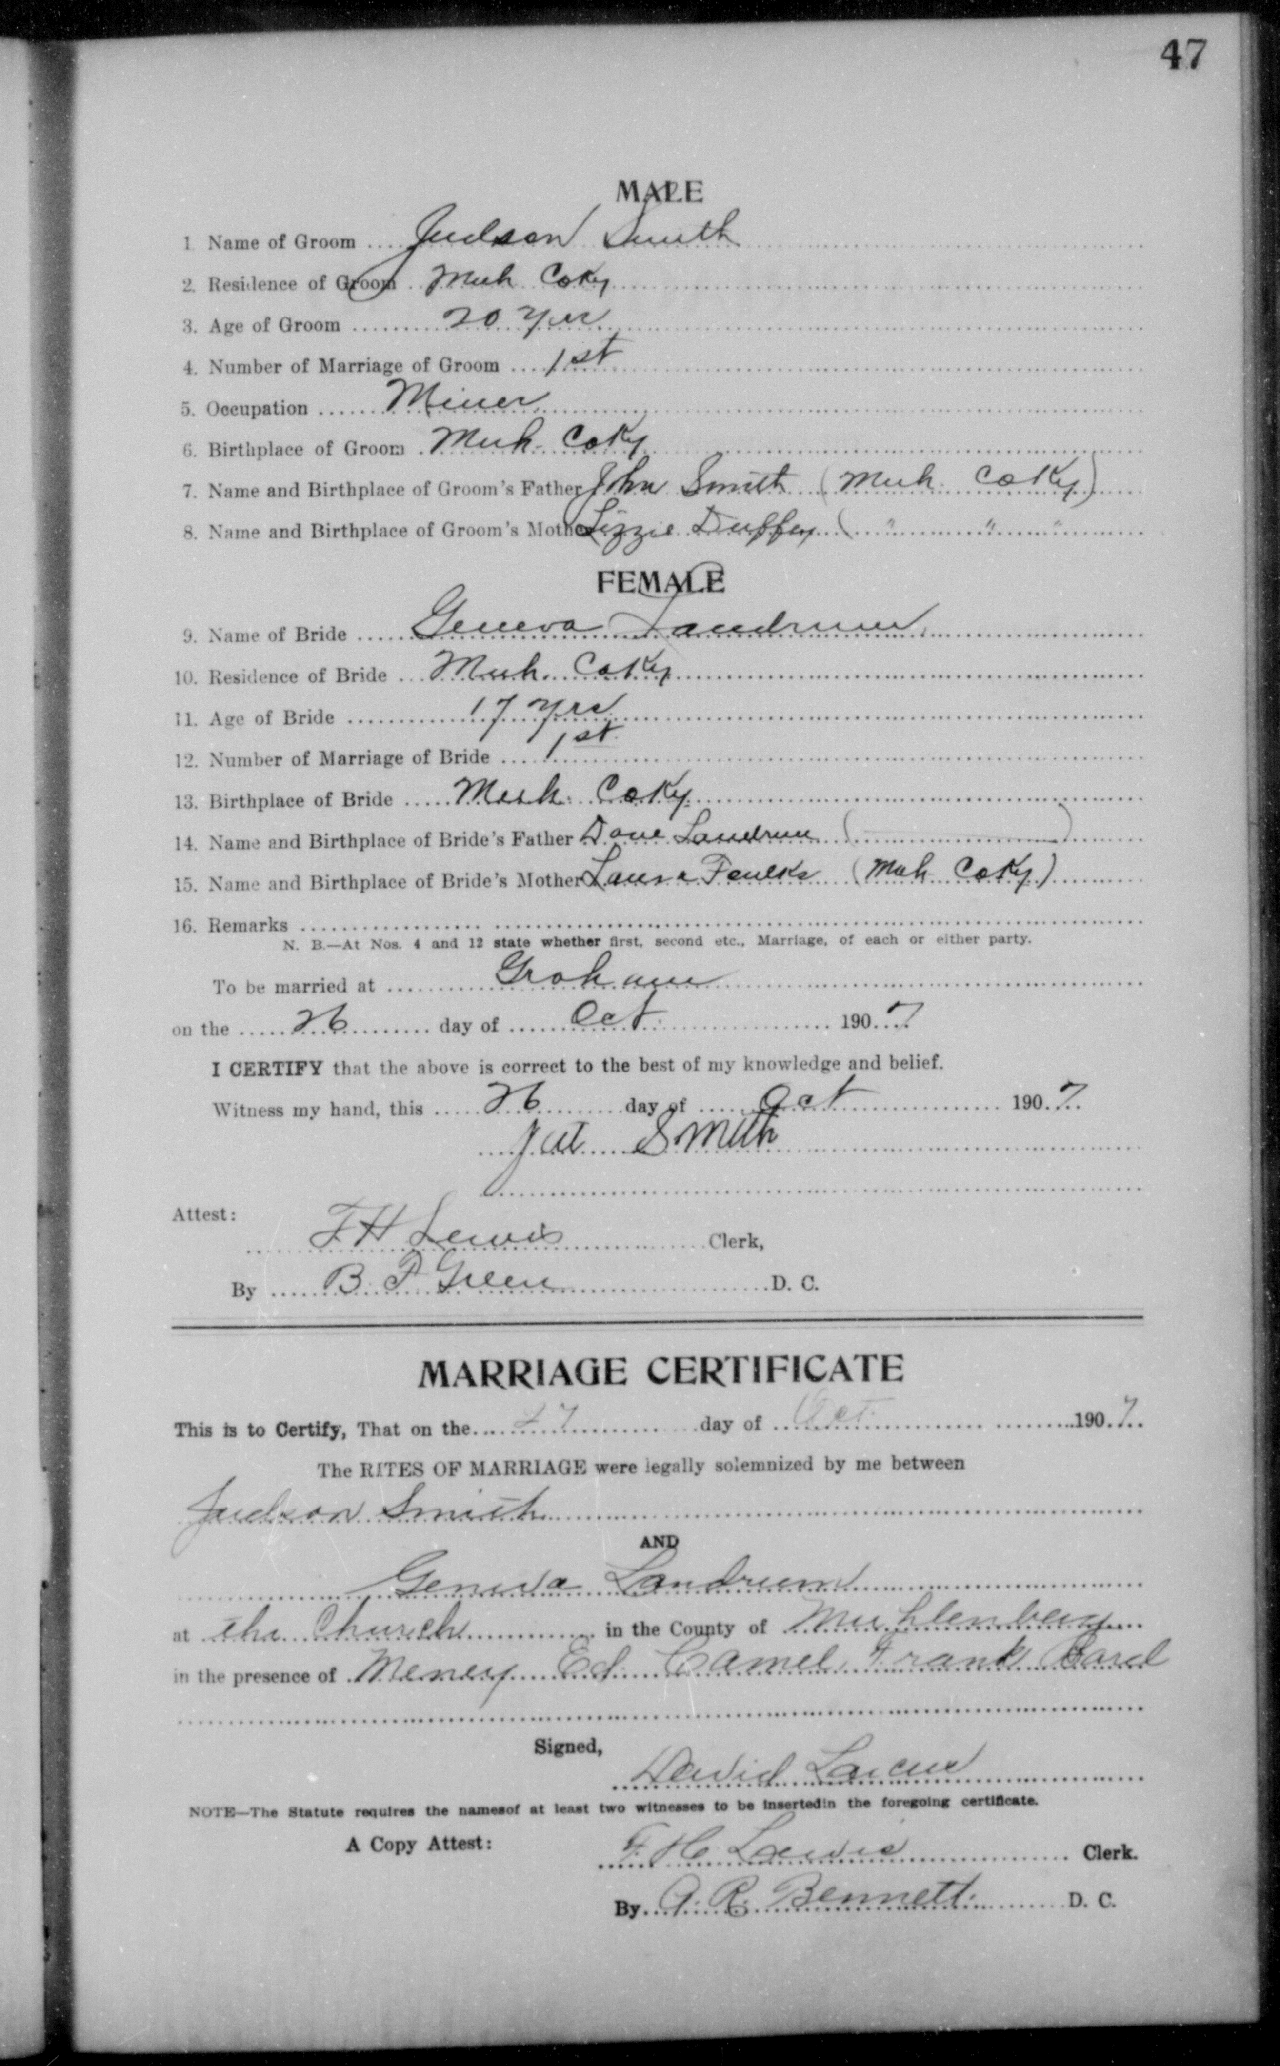 47
MALE
1 Name of Groom .... Judson Smith
2. Residence of Groom .. Muh Co Ky
3. Age of Groom .......... 20 yrs
4. Number of Marriage of Groom .... 1st
5. Occupation ...... Miner
6. Birthplace of Groom . Muh. Co Ky
7. Name and Birthplace of Groom's Father John Smith (Muh. Co Ky)
8. Name and Birthplace of Groom's Mother Lizzie Duffey ( " " "
FEMALE
9. Name of Bride ...... Geneva Landrum
10. Residence of Bride ... Muh. Co Ky
11. Age of Bride .......... 17 yrs
12. Number of Marriage of Bride .... 1st
13. Birthplace of Bride .... Muh. Co Ky
14. Name and Birthplace of Bride's Father Dave Landrum ( ——— )
15. Name and Birthplace of Bride's Mother Laura Faulks (Muh Co Ky)
16. Remarks
N. B.—At Nos. 4 and 12 state whether first, second etc., Marriage, of each or either party.
To be married at .... Graham
on the ..... 26 ..... day of ..... Oct. ..... 190.7
I CERTIFY that the above is correct to the best of my knowledge and belief.
Witness my hand, this ..... 26 ..... day of ..... Oct ..... 190.7.
Smith
Attest:
F H Lewis ..... Clerk,
By ..... B. F. Green ..... D. C.
MARRIAGE CERTIFICATE
This is to Certify, That on the .... 27 .... day of .... Oct. .... 190.7.
The RITES OF MARRIAGE were legally solemnized by me between
Judson Smith
AND
Geneva Landrum
at the Church ..... in the County of Muhlenberg
in the presence of Ed Camel Frank Bard
Signed,
David
NOTE—The Statute requires the namesof at least two witnesses to be insertedin the foregoing certificate.
A Copy Attest:
F. H. Lewis ..... Clerk.
By. A. R. Bennett. ..... D. C.